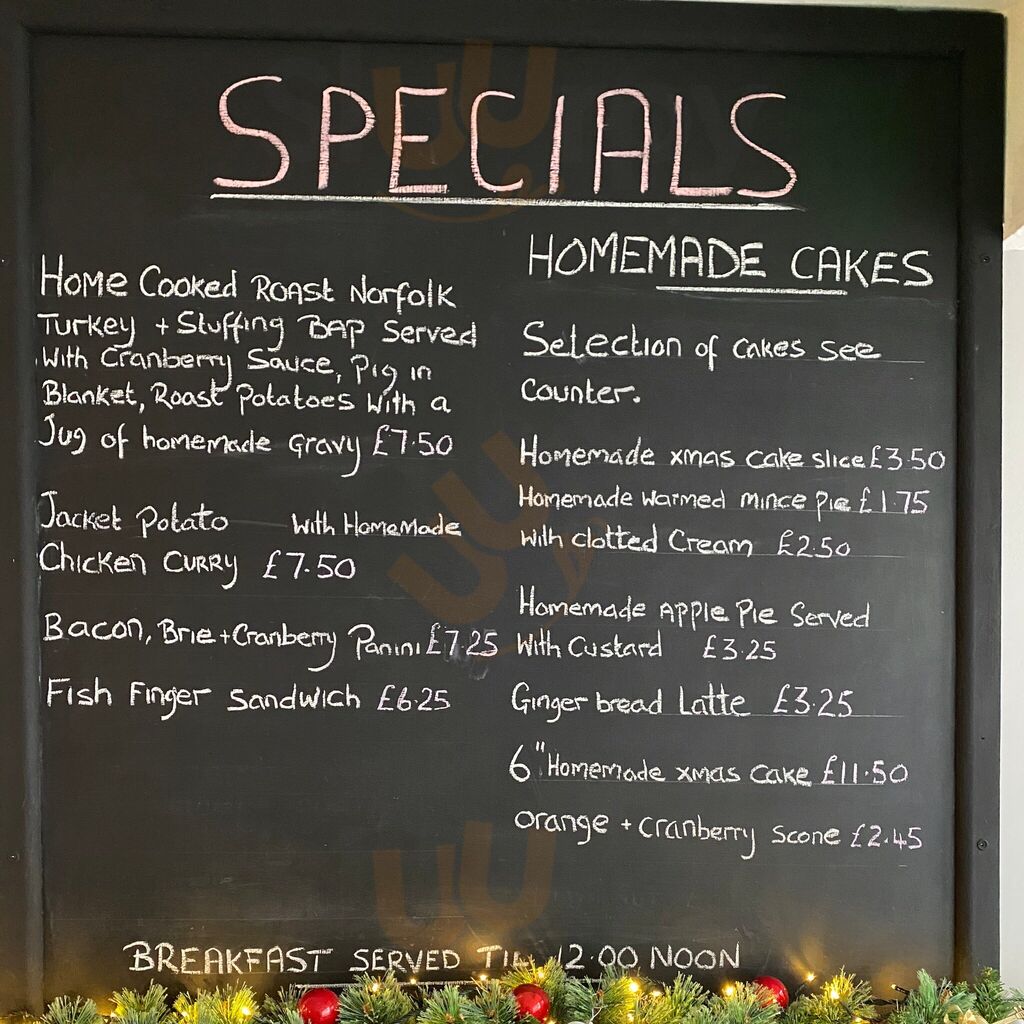 SPECIALS
Home Cooked Roast Norfolk
Turkey + Stuffing BAP Served
With Cranberry Sauce, Pig in
Blanket, Roast Potatoes With a
Jug of homemade Gravy £7.50
Jacket Potato With HomeMade
Chicken Curry £7.50
Bacon, Brie + Cranberry Panini £7.25
Fish Finger Sandwich £6.25
HOMEMADE CAKES
Selection of cakes see
Counter.
Homemade xmas cake slice £3.50
Homemade warmed mince pie £1.75
with clotted Cream £2.50
Homemade APPLE Pie Served
With Custard £3.25
Ginger bread Latte £3.25
6" Homemade xmas Cake £11.50
orange + cranberry Scone £2.45
BREAKFAST SERVED TIL 12.00 NOON